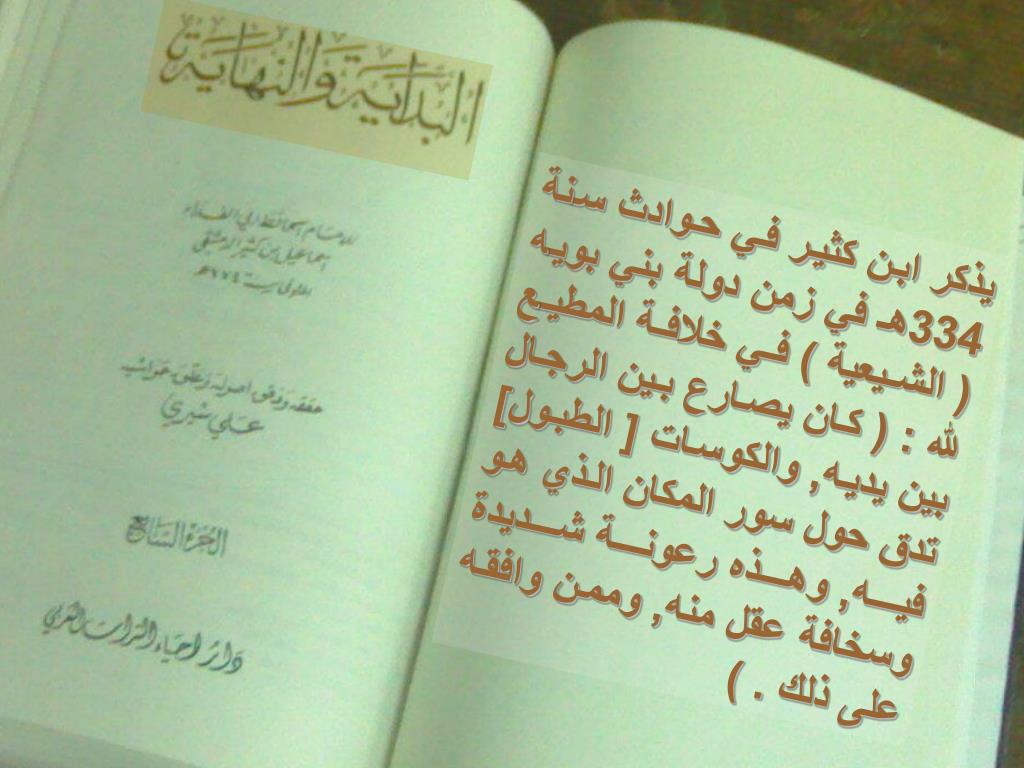 البداية والنهاية
للامام الحافظ ابي الفداء
إسماعيل بن كثير الدمشقي
المتوفى سنة ٧٧٤هـ
حققه ودقق اصوله وعلق حواشيه
علي شيري
الجزء السابع
دار احياء التراث العربي
يذكر ابن كثير في حوادث سنة
334هـ في زمن دولة بني بويه
( الشيعية ) في خلافة المطيع
لله : ( كان يصارع بين الرجال
بين يديه, والكوسات [ الطبول]
تدق حول سور المكان الذي هو
فيه, وهذه رعونة شديدة
وسخافة عقل منه, وممن وافقه
على ذلك . )